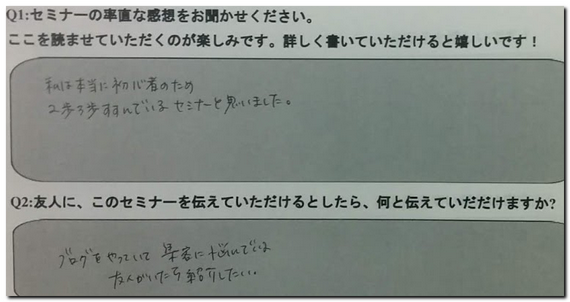 Q1:セミナーの率直な感想をお聞かせください。
ここを読ませていただくのが楽しみです。詳しく書いていただけると嬉しいです！
私は本当に初心者のため
2歩3歩すすんでいるセミナーと思いました。
Q2:友人に、このセミナーを伝えていただけるとしたら、何と伝えていだだけますか?
ブログをやっていて 集客に悩んでいる
友人がいたら紹介したい。